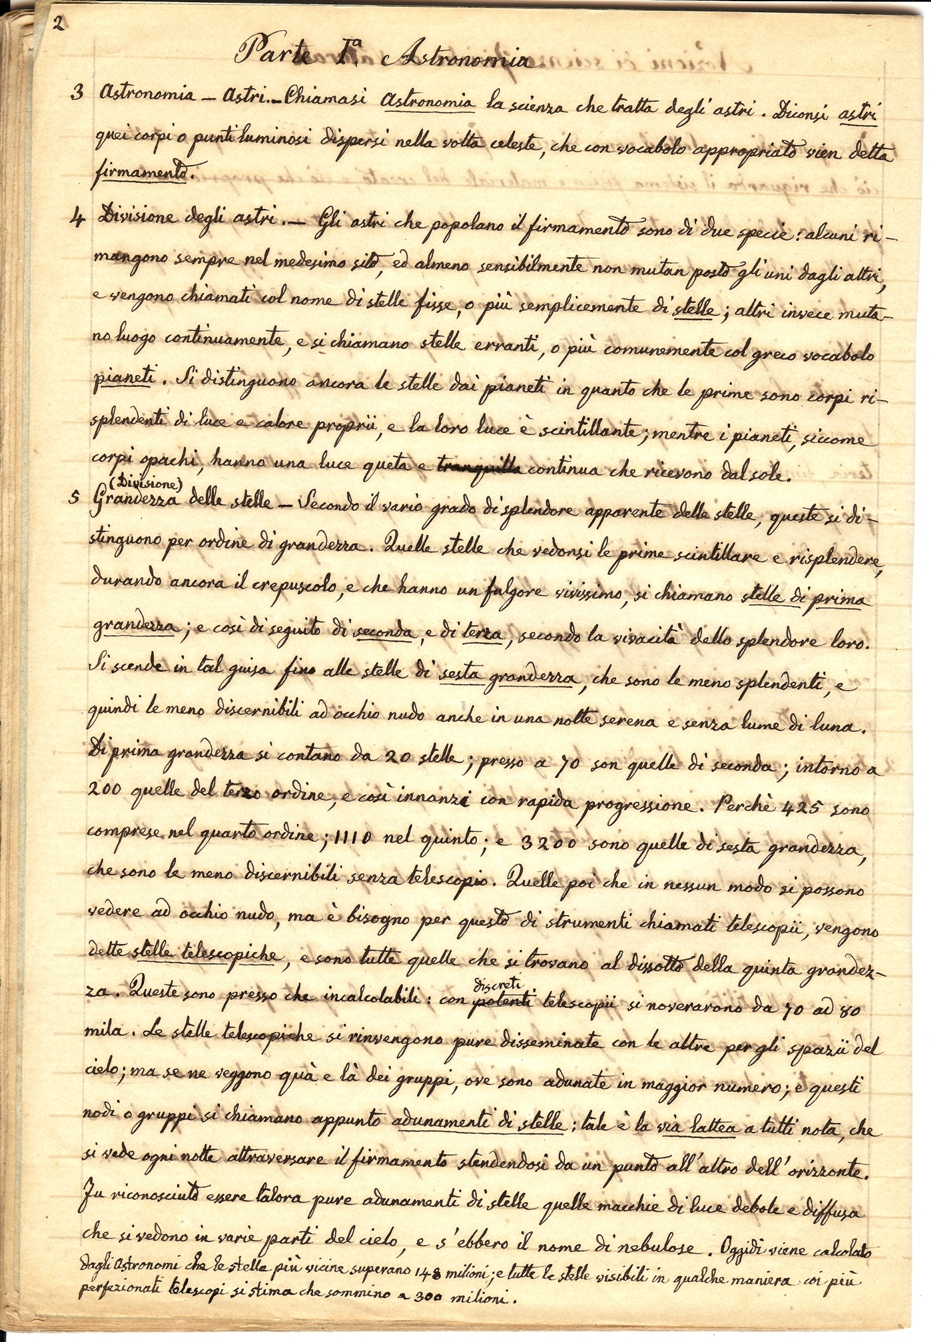 2
Parte Iª Astronomia
3 Astronomia – Astri. – Chiamasi Astronomia la scienza che tratta degli astri. Diconsi astri
quei corpi o punti luminosi dispersi nella volta celeste, che con vocabolo appropriato vien detta
firmamento.
4 Divisione degli astri. – Gli astri che popolano il firmamento sono di due specie: alcuni ri-
mangono sempre nel medesimo sito, od almeno sensibilmente non mutan posto gli uni dagli altri,
e vengono chiamati col nome di stelle fisse, o più semplicemente di stelle; altri invece muta-
no luogo continuamente, e si chiamano stelle erranti, o più comunemente col greco vocabolo
pianeti. Si distinguono ancora le stelle dai pianeti in quanto che le prime sono corpi ri-
splendenti di luce e calore proprii, e la loro luce è scintillante; mentre i pianeti, siccome
corpi opachi, hanno una luce queta e tranquilla continua che ricevono dal sole.
(Divisione)
5 Grandezza delle stelle – Secondo il vario grado di splendore apparente delle stelle, queste si di-
stinguono per ordine di grandezza. Quelle stelle che vedonsi le prime scintillare e risplendere,
durando ancora il crepuscolo, e che hanno un fulgore vivissimo, si chiamano stelle di prima
grandezza; e così di seguito di seconda, e di terza, secondo la vivacità dello splendore loro.
Si scende in tal guisa fino alle stelle di sesta grandezza, che sono le meno splendenti, e
quindi le meno discernibili ad occhio nudo anche in una notte serena e senza lume di luna.
Di prima grandezza si contano da 20 stelle; presso a 70 son quelle di seconda; intorno a
200 quelle del terzo ordine, e così innanzi con rapida progressione. Perchè 425 sono
comprese nel quarto ordine; 1110 nel quinto; e 3200 sono quelle di sesta grandezza,
che sono le meno discernibili senza telescopio. Quelle poi che in nessun modo si possono
vedere ad occhio nudo, ma è bisogno per questo di strumenti chiamati telescopii, vengono
dette stelle telescopiche, e sono tutte quelle che si trovano al dissotto della quinta grandez-
discreti
za. Queste sono presso che incalcolabili: con potenti telescopii si noverarono da 70 ad 80
mila. Le stelle telescopiche si rinvengono pure disseminate con le altre per gli spazii del
cielo; ma se ne veggono quà e là dei gruppi, ove sono adunate in maggior numero; e questi
nodi o gruppi si chiamano appunto adunamenti di stelle; tale è la via lattea a tutti nota, che
si vede ogni notte attraversare il firmamento stendendosi da un punto all'altro dell'orizzonte.
Fu riconosciuto essere talora pure adunamenti di stelle quelle macchie di luce debole e diffusa
che si vedono in varie parti del cielo, e s'ebbero il nome di nebulose. Oggidì viene calcolato
dagli Astronomi che le stelle più vicine superano 148 milioni; e tutte le stelle visibili in qualche maniera coi più
perfezionati telescopi si stima che sommino a 300 milioni.